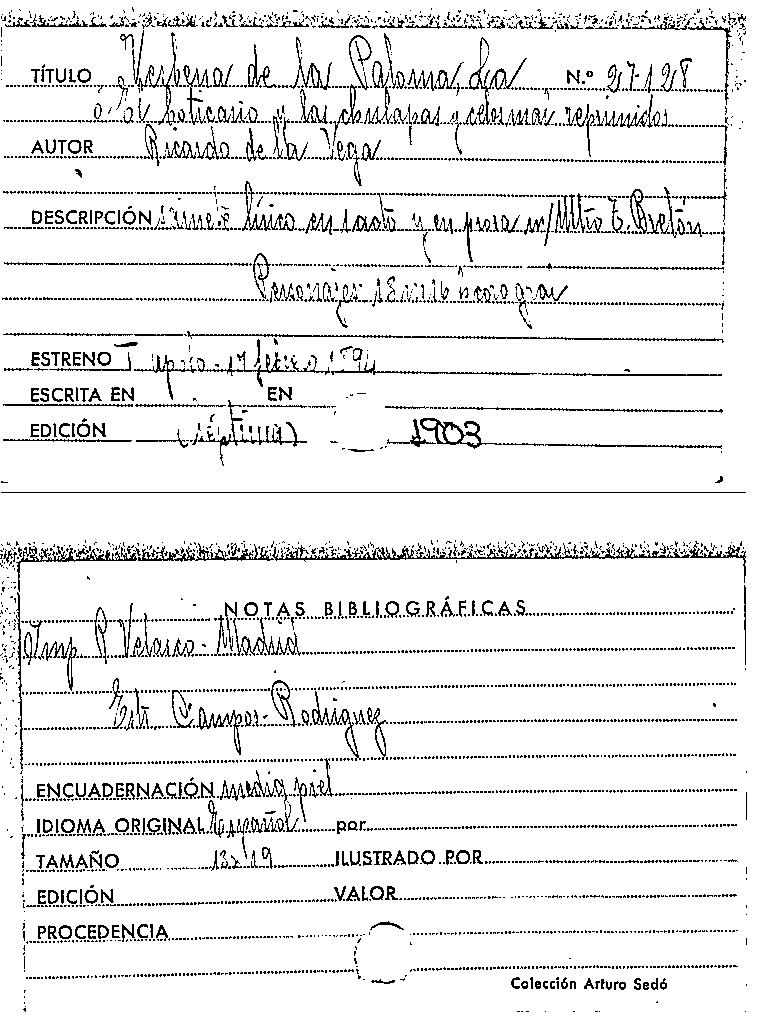 TÍTULO Verbena de la Paloma, La N.º 27-128
ó El boticario y las chulapas y celos mal reprimidos
AUTOR Ricardo de la Vega
DESCRIPCIÓN sainete lírico en 1 acto y en prosa m/ Mtro T. Bretón
Personajes 13 m 16 h coro gral
ESTRENO T Apolo - 17 febrero 1894
ESCRITA EN EN
EDICIÓN (séptima) 1903
NOTAS BIBLIOGRÁFICAS
Imp R Velasco - Madrid
Campos - Rodriguez
ENCUADERNACIÓN media piel
IDIOMA ORIGINAL Español por
TAMAÑO 13x19 ILUSTRADO POR
EDICIÓN VALOR
PROCEDENCIA
Colección Arturo Sedó